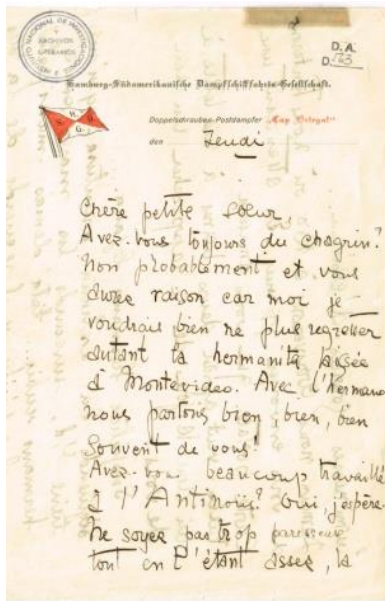 INSTITUTO NACIONAL DE INVESTIGACIONES
ARCHIVOS
LITERARIOS
D.A.
D.563
Hamburg-Südamerikanische Dampfschifffahrts-Gesellschaft.
H.
S. D.
G.
Doppelschrauben-Postdampfer „Cap Ortegal"
den Jeudi
Chère petite Soeur,
Avez-vous toujours du chagrin?
Non probablement et vous
avez raison car moi je
voudrais bien ne plus regretter
autant la hermanita laissée
à Montevideo. Avec l'hermano
nous parlons bien, bien, bien
souvent de vous!
Avez-vous beaucoup travaillé
à l'Antinoüs? Oui, j'espère.
Ne soyez pas trop paresseuse
tout en l'étant assez, la